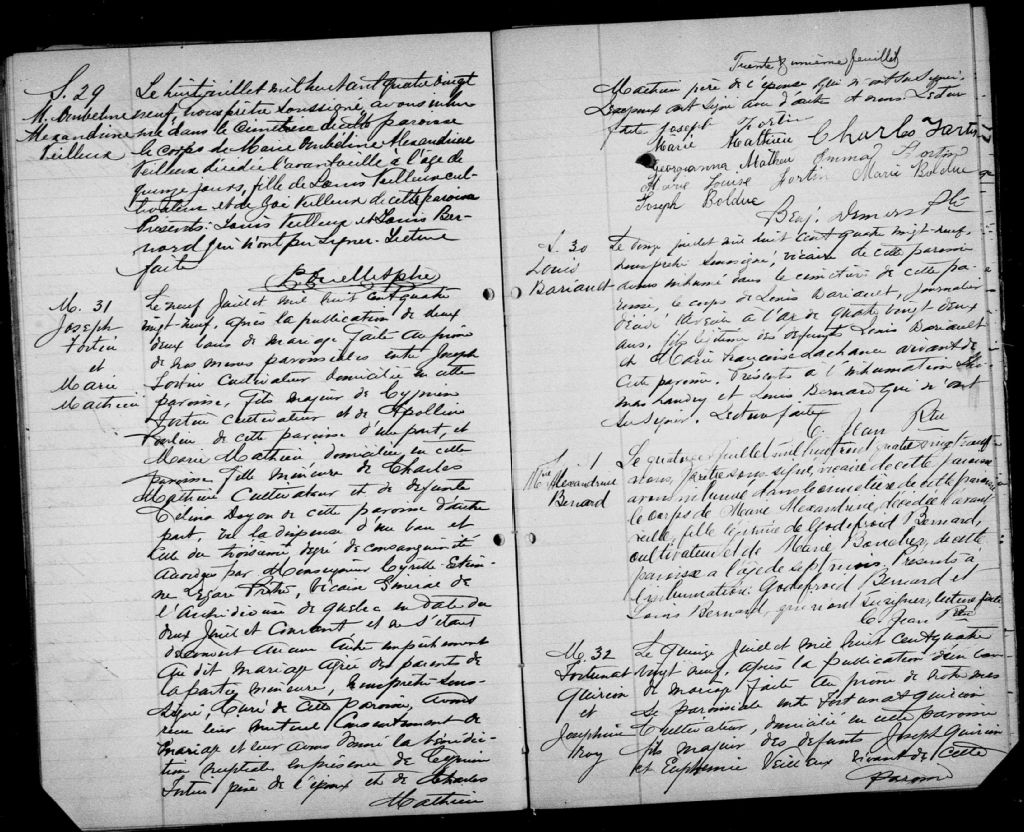 S. 29
M. Ombeline
Alexandrine
Veilleux
Le huit juillet mil huit cent quatre vingt
neuf, nous prêtre soussigné, avons inhu
mé dans le cimetière de cette paroisse
le corps de Marie Ombeline Alexandrine
Veilleux décédée l'avant veille à l'âge de
quinze jours, fille de Louis Veilleux cul-
tivateur et de Zoé Veilleux de cette paroisse
Présents: Louis Veilleux et Louis Ber-
nard qui n'ont pu signer. Lecture
faite
M. 31
Joseph
Fortin
et
Marie
Mathieu
Le neuf Juillet mil huit cent quatre
vingt neuf, après la publication de deux
bans de mariage faite au prône
de nos messes paroissiales entre Joseph
Fortin Cultivateur domicilié en cette
paroisse, fils majeur de
Fortin Cultivateur et de Apolline
de cette paroisse d'une part, et
Marie Mathieu domiciliée en cette
paroisse fille mineure de Charles
Mathieu Cultivateur et de défunte
Célina Doyon de cette paroisse d'autre
part, vu la dispense d'un ban et
celle du troisième degré de consanguinité
accordées par Monseigneur Cyrille Etien-
ne Légaré Prêtre, Vicaire Général de
l'Archidiocèse de Québec en date du
deux Juillet Courant et ne s'étant
découvert aucun autre empêchement
au dit mariage agréé des parents de
la partie mineure, nous prêtre sous-
signé, Curé de cette paroisse, avons
reçu leur mutuel Consentement de
mariage et leur avons donné la bénédic-
tion nuptiale en présence de
Fortin père de l'époux et de Charles
Mathieu
Trente unième feuillet
Mathieu père de l'épouse qui n'ont su signer.
Les époux ont signé avec d'autre et nous. Lecture
faite Joseph Fortin
Marie Mathieu Charles Fortin
Georgianna Mathieu Emma Fortin
Marie Louise Fortin Marie Bolduc
Joseph Bolduc
Benj. Demers Ptre
S. 30
Louis
Bariault
Le onze juillet mil huit cent quatre vingt-neuf,
nous prêtre soussigné, vicaire de cette paroisse
avons inhumé dans le cimetière de cette pa-
roisse, le corps de Louis Bariault, journalier
décédé à l'âge de quatre vingt deux
ans, fils légitime des défunts Louis Bariault
et Marie Françoise Lachance vivant de
cette paroisse. Présents à l'inhumation Tho-
mas Landry et Louis Bernard qui n'ont
su signer. Lecture faite
C. Jean Ptre
Mie Alexandrine
Bernard
Le quatorze juillet mil huit cent quatre vingt neuf
nous, prêtre soussigné, vicaire de cette paroisse
avons inhumé dans le cimetière de cette paroisse
le corps de Marie Alexandrine, décédée l'avant
veille, fille légitime de Godefroid Bernard,
cultivateur et de Marie Boucher, de cette
paroisse à l'âge de sept mois. Présents à
l'inhumation: Godefroid Bernard et
Louis Bernard, qui n'ont su signer, lecture faite
C. Jean Ptre
M. 32
Fortunat
Quirion
et
Josephine
Roy
Le Quinze Juillet mil huit cent quatre
vingt neuf, après la publication d'un ban
de mariage faite au prône de notre mes
se paroissiale entre Fortunat Quirion
Cultivateur, domicilié en cette paroisse
fils majeur des défunts Joseph Quirion
et Euphémie Veilleux vivant de cette
paroisse